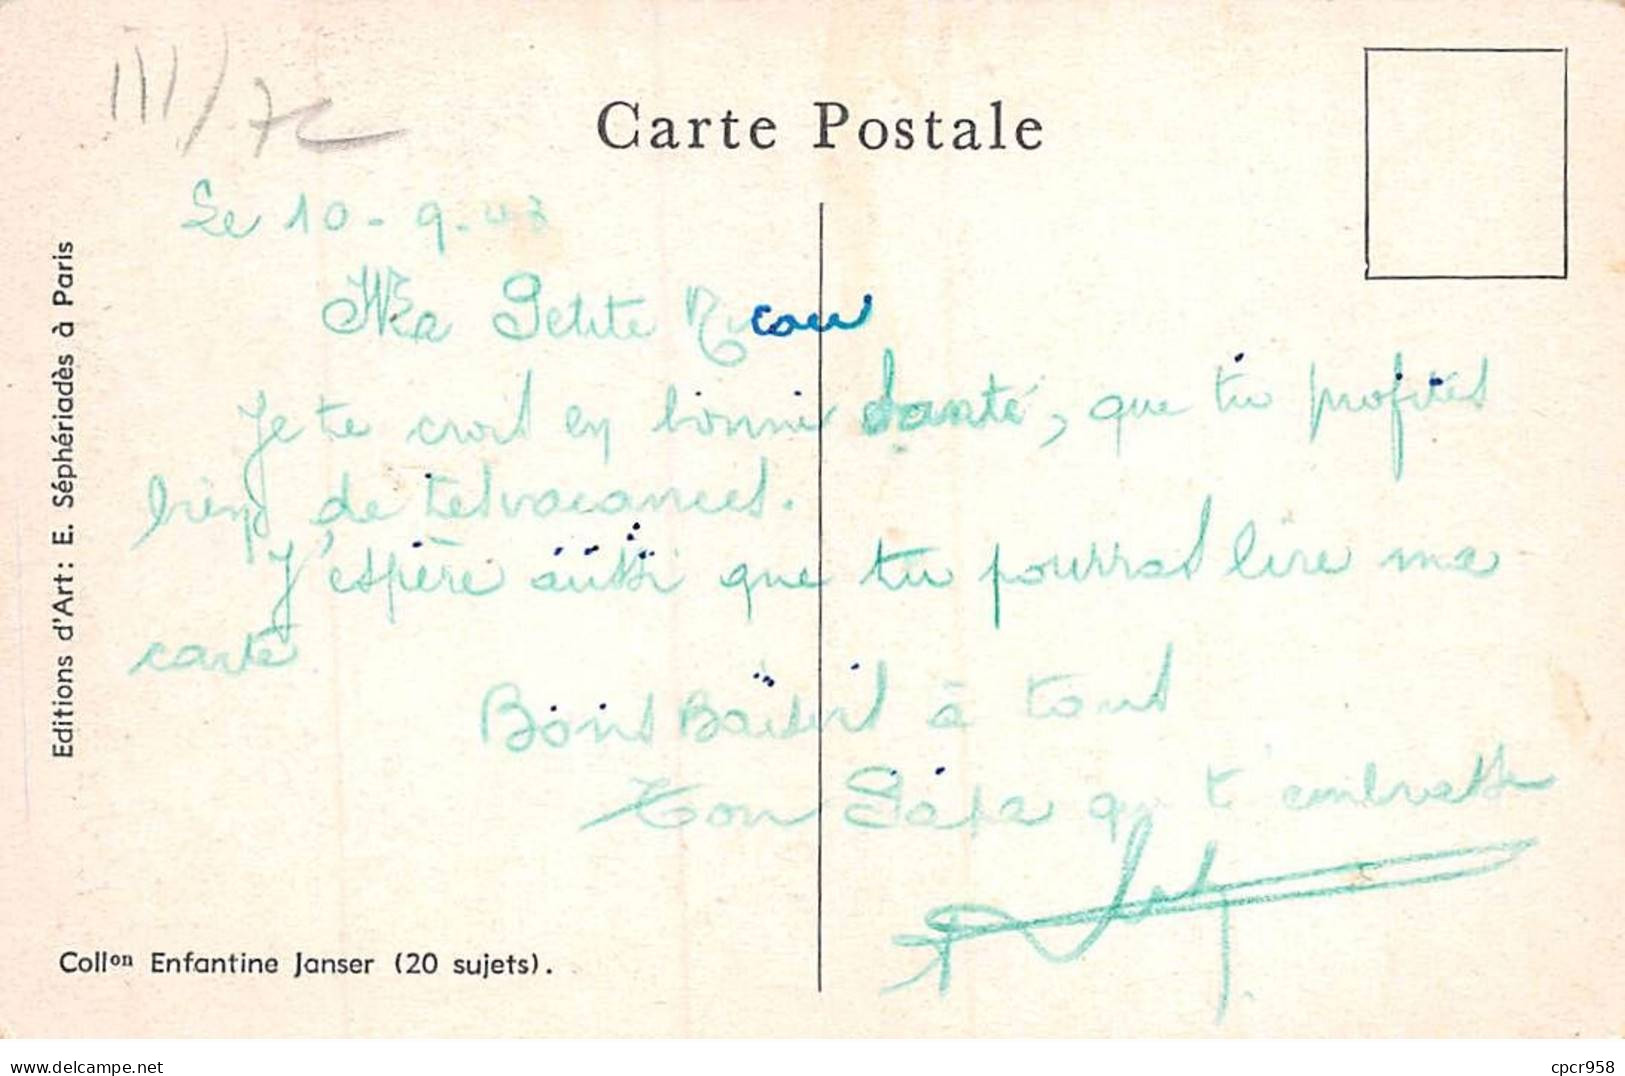 III/72
Carte Postale
Le 10-9-43
Ma Petite
Je te crois en bonne santé, que tu profites
bien de tes vacances.
J'espère aussi que tu pourras lire ma
carte
Bons Baisers à tous
Ton Papa qui t'embrasse
Editions d'Art: E. Séphériadès à Paris
Collon Enfantine Janser (20 sujets).
delcampe.net
cpcr958